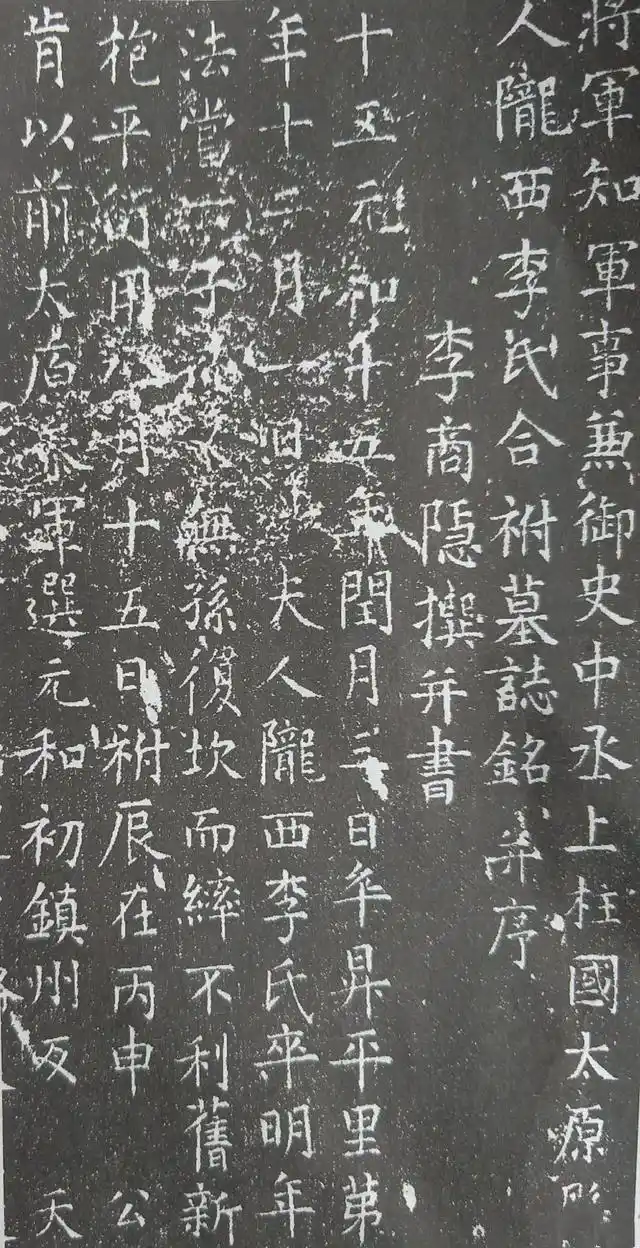 將軍知軍事兼御史中丞上柱國太原
人隴西李氏合祔墓誌銘并序
李商隱撰并書
十五元和十五年閏月三日卒昇平里第
年十二月一日夫人隴西李氏卒明年
法當子無孫復坎而繂不利舊新
枹平衡用月十五日祔辰在丙申公
肯以前太原參軍選元和初鎮州反天